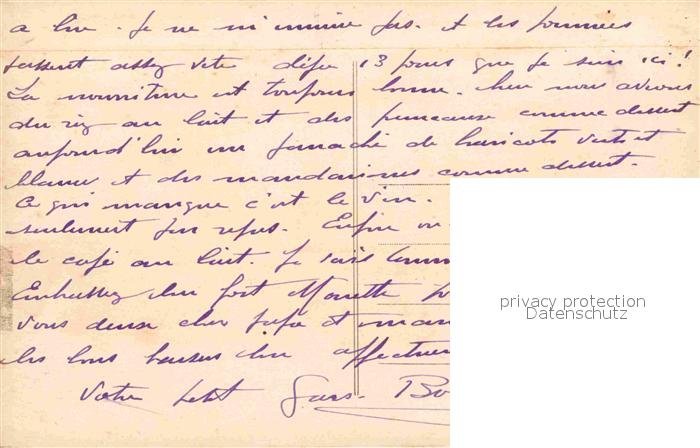 a lire. Je ne m'ennuie pas. et les journées
passent assez vite déjà 13 jours que je suis ici!
La nourriture est toujours bonne. hier nous avions
du riz au lait et des pruneaux comme dessert
aujourd'hui un panaché de haricots verts et
blancs et des mandarines comme dessert.
Ce qui manque c'est le vin.
seulement par repas. Enfin on
le café au lait. Je suis
Embrassez bien fort Monette
vous deux cher papa et
les bons baisers bien
Votre petit Gars.
privacy protection
Datenschutz